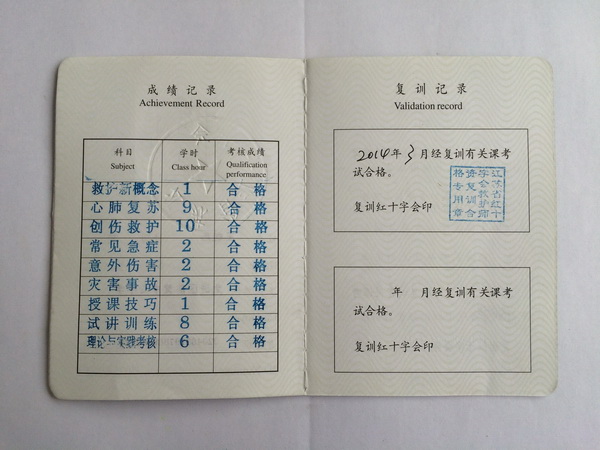 成绩记录
Achievement Record
科目 学时 考核成绩
Subject Class hour Qualification performance
救护新概念 1 合格
心肺复苏 9 合格
创伤救护 10 合格
常见急症 2 合格
意外伤害 2 合格
灾害事故 2 合格
授课技巧 1 合格
试讲训练 8 合格
理论与实践考核 6 合格
复训记录
Validation record
2014年3月经复训有关课考
试合格。
复训红十字会印
年 月经复训有关课考
试合格。
复训红十字会印